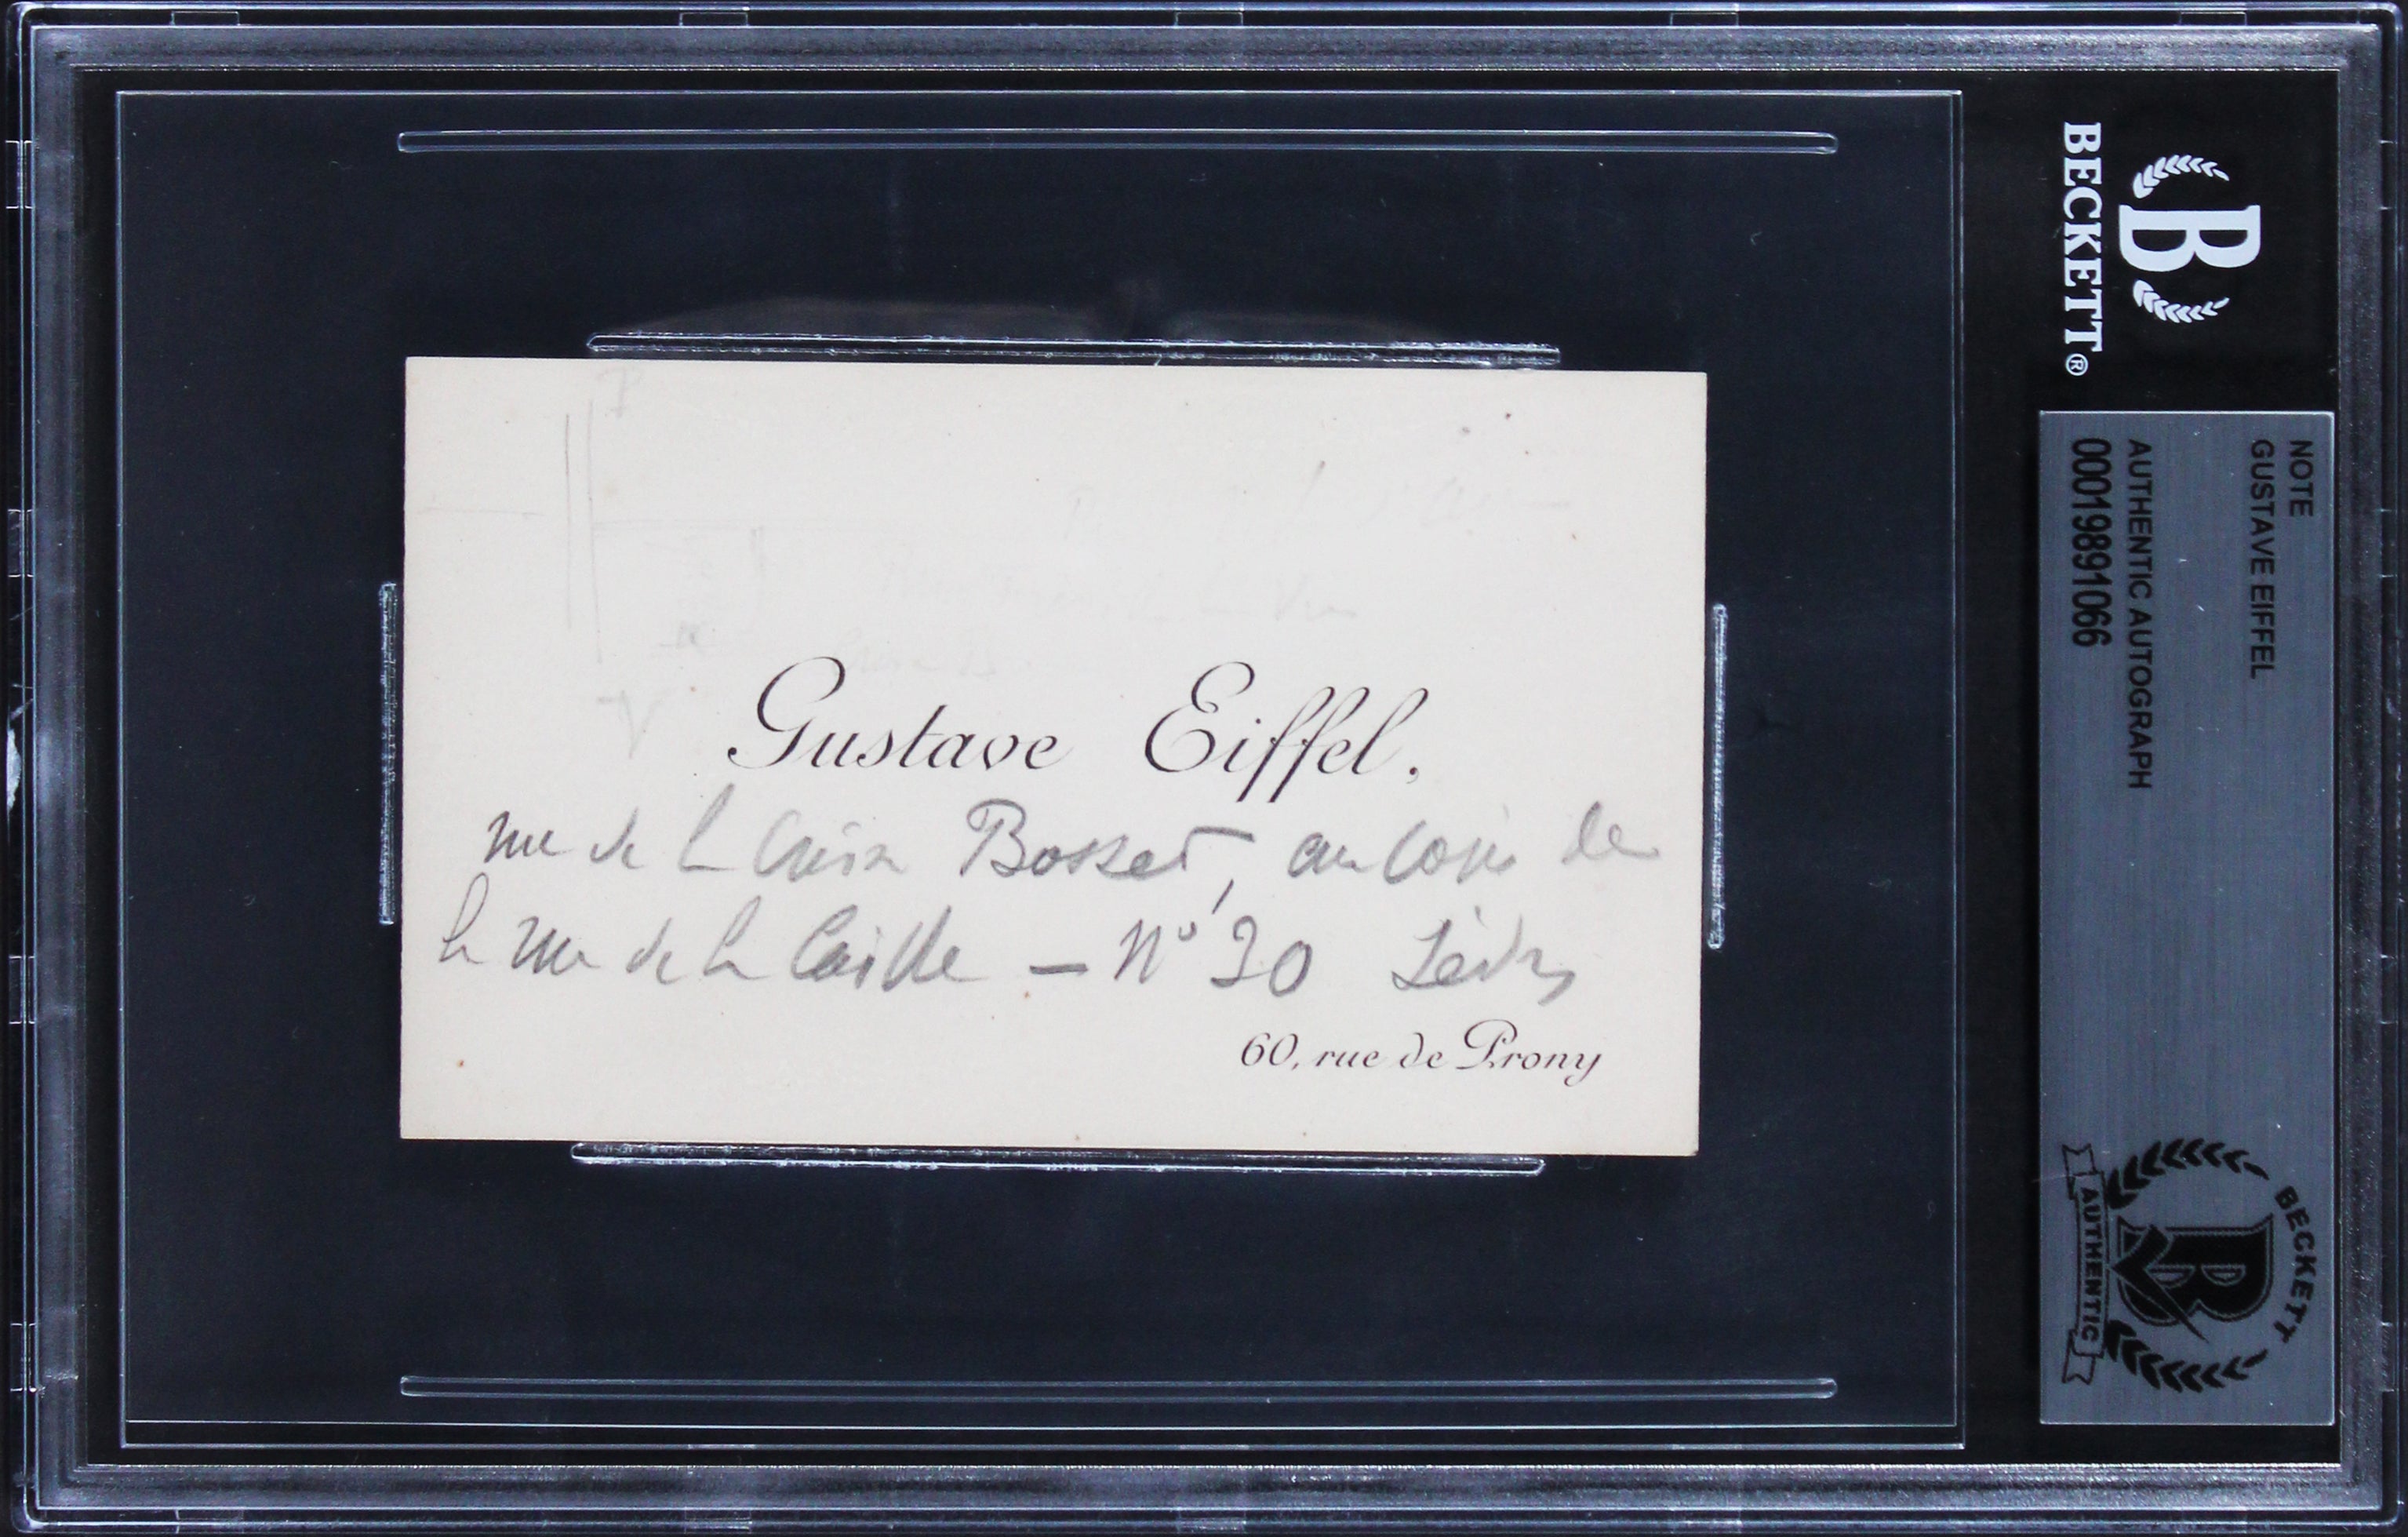 Gustave Eiffel.
rue de la Croix Bosset, au coin de
la rue de la Caille — N° 30 Sèvres
60, rue de Prony
BECKETT®
NOTE
GUSTAVE EIFFEL
AUTHENTIC AUTOGRAPH
00019891066
BECKETT
B
AUTHENTIC